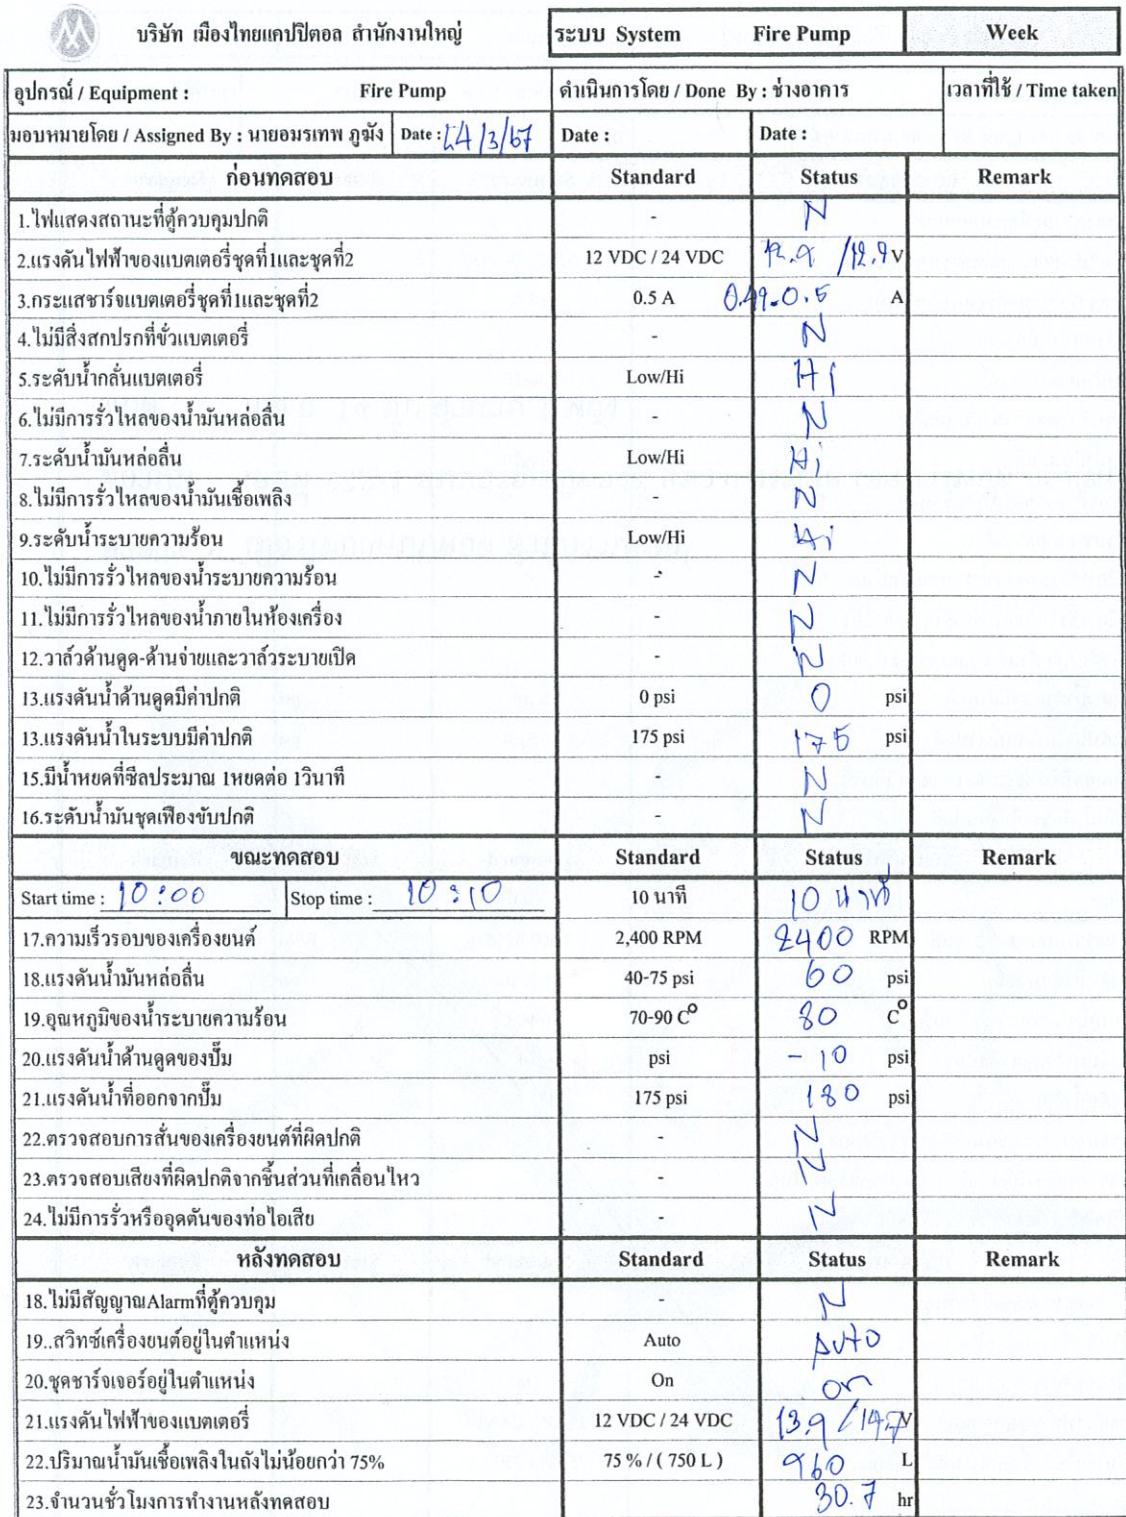 บริษัท เมืองไทยแคปปิตอล สำนักงานใหญ่ ระบบ System Fire Pump Week
อุปกรณ์ / Equipment : Fire Pump ดำเนินการโดย / Done By : ช่างอาคาร เวลาที่ใช้ / Time taken
มอบหมายโดย / Assigned By : นายอมรเทพ ภูมัง Date : /3/67 Date : Date :
ก่อนทดสอบ Standard Status Remark
1.ไฟแสดงสถานะที่ตู้ควบคุมปกติ - N
2.แรงดันไฟฟ้าของแบตเตอรี่ชุดที่1และชุดที่2 12 VDC / 24 VDC 12.9 /12.9 V
3.กระแสชาร์จแบตเตอรี่ชุดที่1และชุดที่2 0.5 A 0.49-0.5 A
4.ไม่มีสิ่งสกปรกที่ขั่วแบตเตอรี่ - N
5.ระดับน้ำกลั่นแบตเตอรี่ Low/Hi Hi
6.ไม่มีการรั่วไหลของน้ำมันหล่อลื่น - N
7.ระดับน้ำมันหล่อลื่น Low/Hi Hi
8.ไม่มีการรั่วไหลของน้ำมันเชื้อเพลิง - N
9.ระดับน้ำระบายความร้อน Low/Hi Hi
10.ไม่มีการรั่วไหลของน้ำระบายความร้อน - N
11.ไม่มีการรั่วไหลของน้ำภายในห้องเครื่อง - N
12.วาล์วด้านดูด-ด้านจ่ายและวาล์วระบายเปิด - N
13.แรงดันน้ำด้านดูดมีค่าปกติ 0 psi 0 psi
13.แรงดันน้ำในระบบมีค่าปกติ 175 psi 175 psi
15.มีน้ำหยดที่ซีลประมาณ 1หยดต่อ 1วินาที - N
16.ระดับน้ำมันชุดเฟืองขับปกติ - N
ขณะทดสอบ Standard Status Remark
Start time : 10:00 Stop time : 10:10 10 นาที 10 นาที
17.ความเร็วรอบของเครื่องยนต์ 2,400 RPM 2400 RPM
18.แรงดันน้ำมันหล่อลื่น 40-75 psi 60 psi
19.อุณหภูมิของน้ำระบายความร้อน 70-90 C° 80 C°
20.แรงดันน้ำด้านดูดของปั๊ม psi - 10 psi
21.แรงดันน้ำที่ออกจากปั๊ม 175 psi 180 psi
22.ตรวจสอบการสั่นของเครื่องยนต์ที่ผิดปกติ - N
23.ตรวจสอบเสียงที่ผิดปกติจากชิ้นส่วนที่เคลื่อนไหว - N
24.ไม่มีการรั่วหรืออุดตันของท่อไอเสีย - N
หลังทดสอบ Standard Status Remark
18.ไม่มีสัญญาณAlarmที่ตู้ควบคุม - N
19..สวิทซ์เครื่องยนต์อยู่ในตำแหน่ง Auto Auto
20.ชุดชาร์จเจอร์อยู่ในตำแหน่ง On on
21.แรงดันไฟฟ้าของแบตเตอรี่ 12 VDC / 24 VDC 13.9 /14.7 V
22.ปริมาณน้ำมันเชื้อเพลิงในถังไม่น้อยกว่า 75% 75 % / ( 750 L ) 960 L
23.จำนวนชั่วโมงการทำงานหลังทดสอบ 30.7 hr